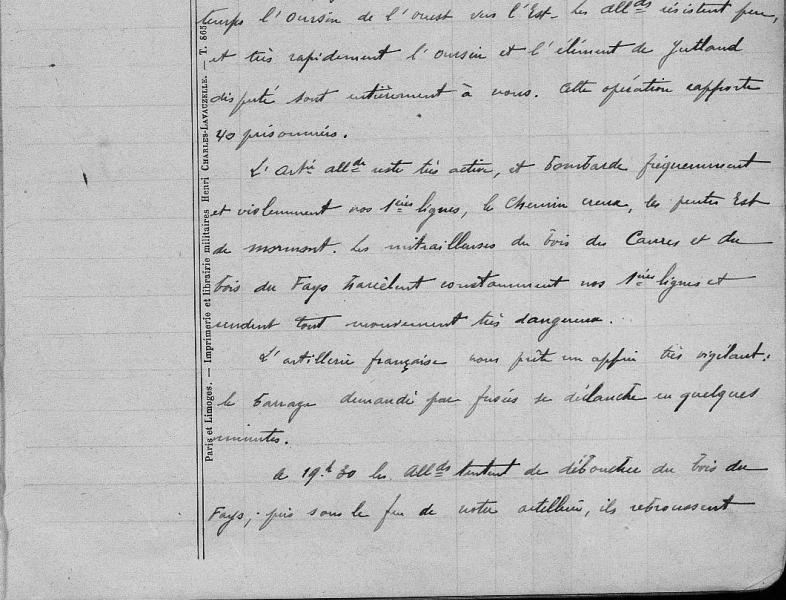 temps l'oursin de l'ouest vers l'Est. Les all^ds résistent peu,
et très rapidement l'oursin et l'élément de Jutland
disputé sont entièrement à nous. Cette opération rapporte
40 prisonniers.
L'Art^ie all^de reste très active, et bombarde fréquemment
et violemment nos 1^ères lignes, le Chemin creux, les pentes Est
de Mormont. Les mitrailleuses du bois des Caures et du
bois du Fays harcèlent constamment nos 1^ères lignes et
rendent tout mouvement très dangereux.
L'artillerie française nous prête un appui très vigilant:
le barrage demandé par fusées se déclanche en quelques
minutes.
A 19^h30 les All^ds tentent de déboucher du bois du
Fays; pris sous le feu de notre artillerie, ils rebroussent
Paris et Limoges. — Imprimerie et librairie militaires Henri CHARLES-LAVAUZELLE. — T. 865